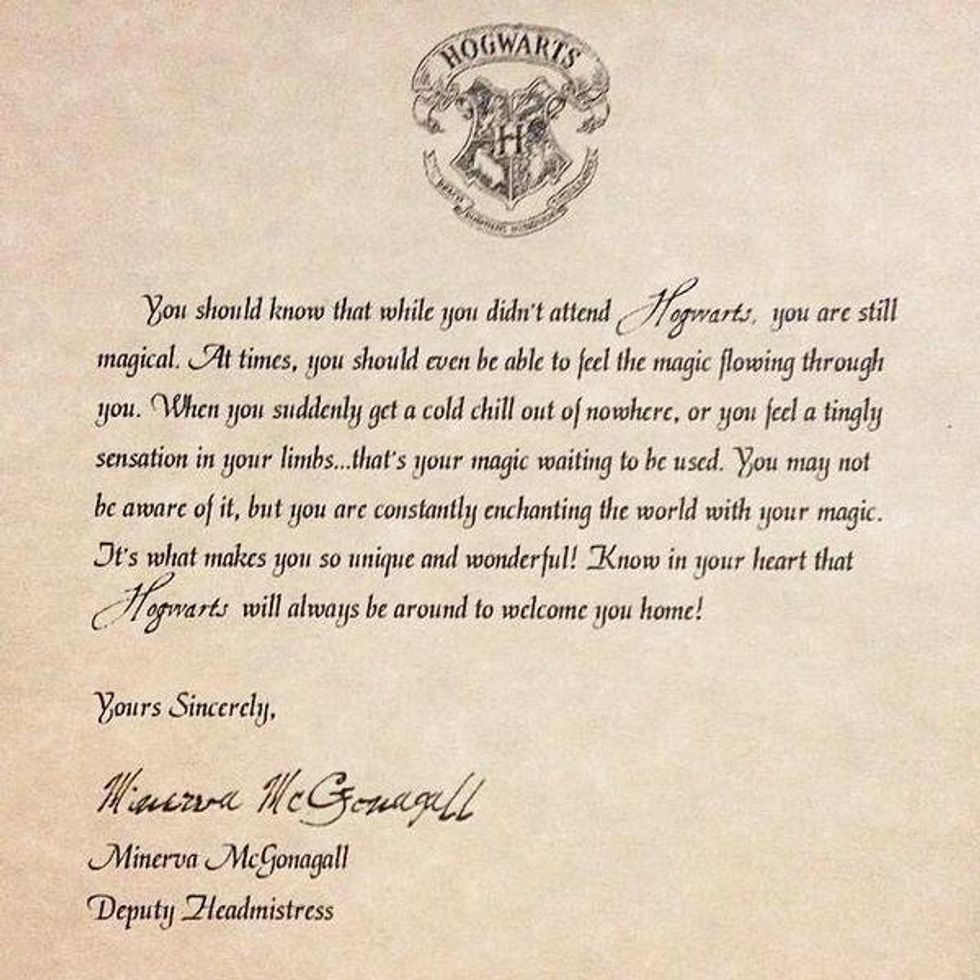 HOGWARTS
H
You should know that while you didn't attend Hogwarts, you are still
magical. At times, you should even be able to feel the magic flowing through
you. When you suddenly get a cold chill out of nowhere, or you feel a tingly
sensation in your limbs...that's your magic waiting to be used. You may not
be aware of it, but you are constantly enchanting the world with your magic.
It's what makes you so unique and wonderful! Know in your heart that
Hogwarts will always be around to welcome you home!
Yours Sincerely,
Minerva McGonagall
Minerva McGonagall
Deputy Headmistress